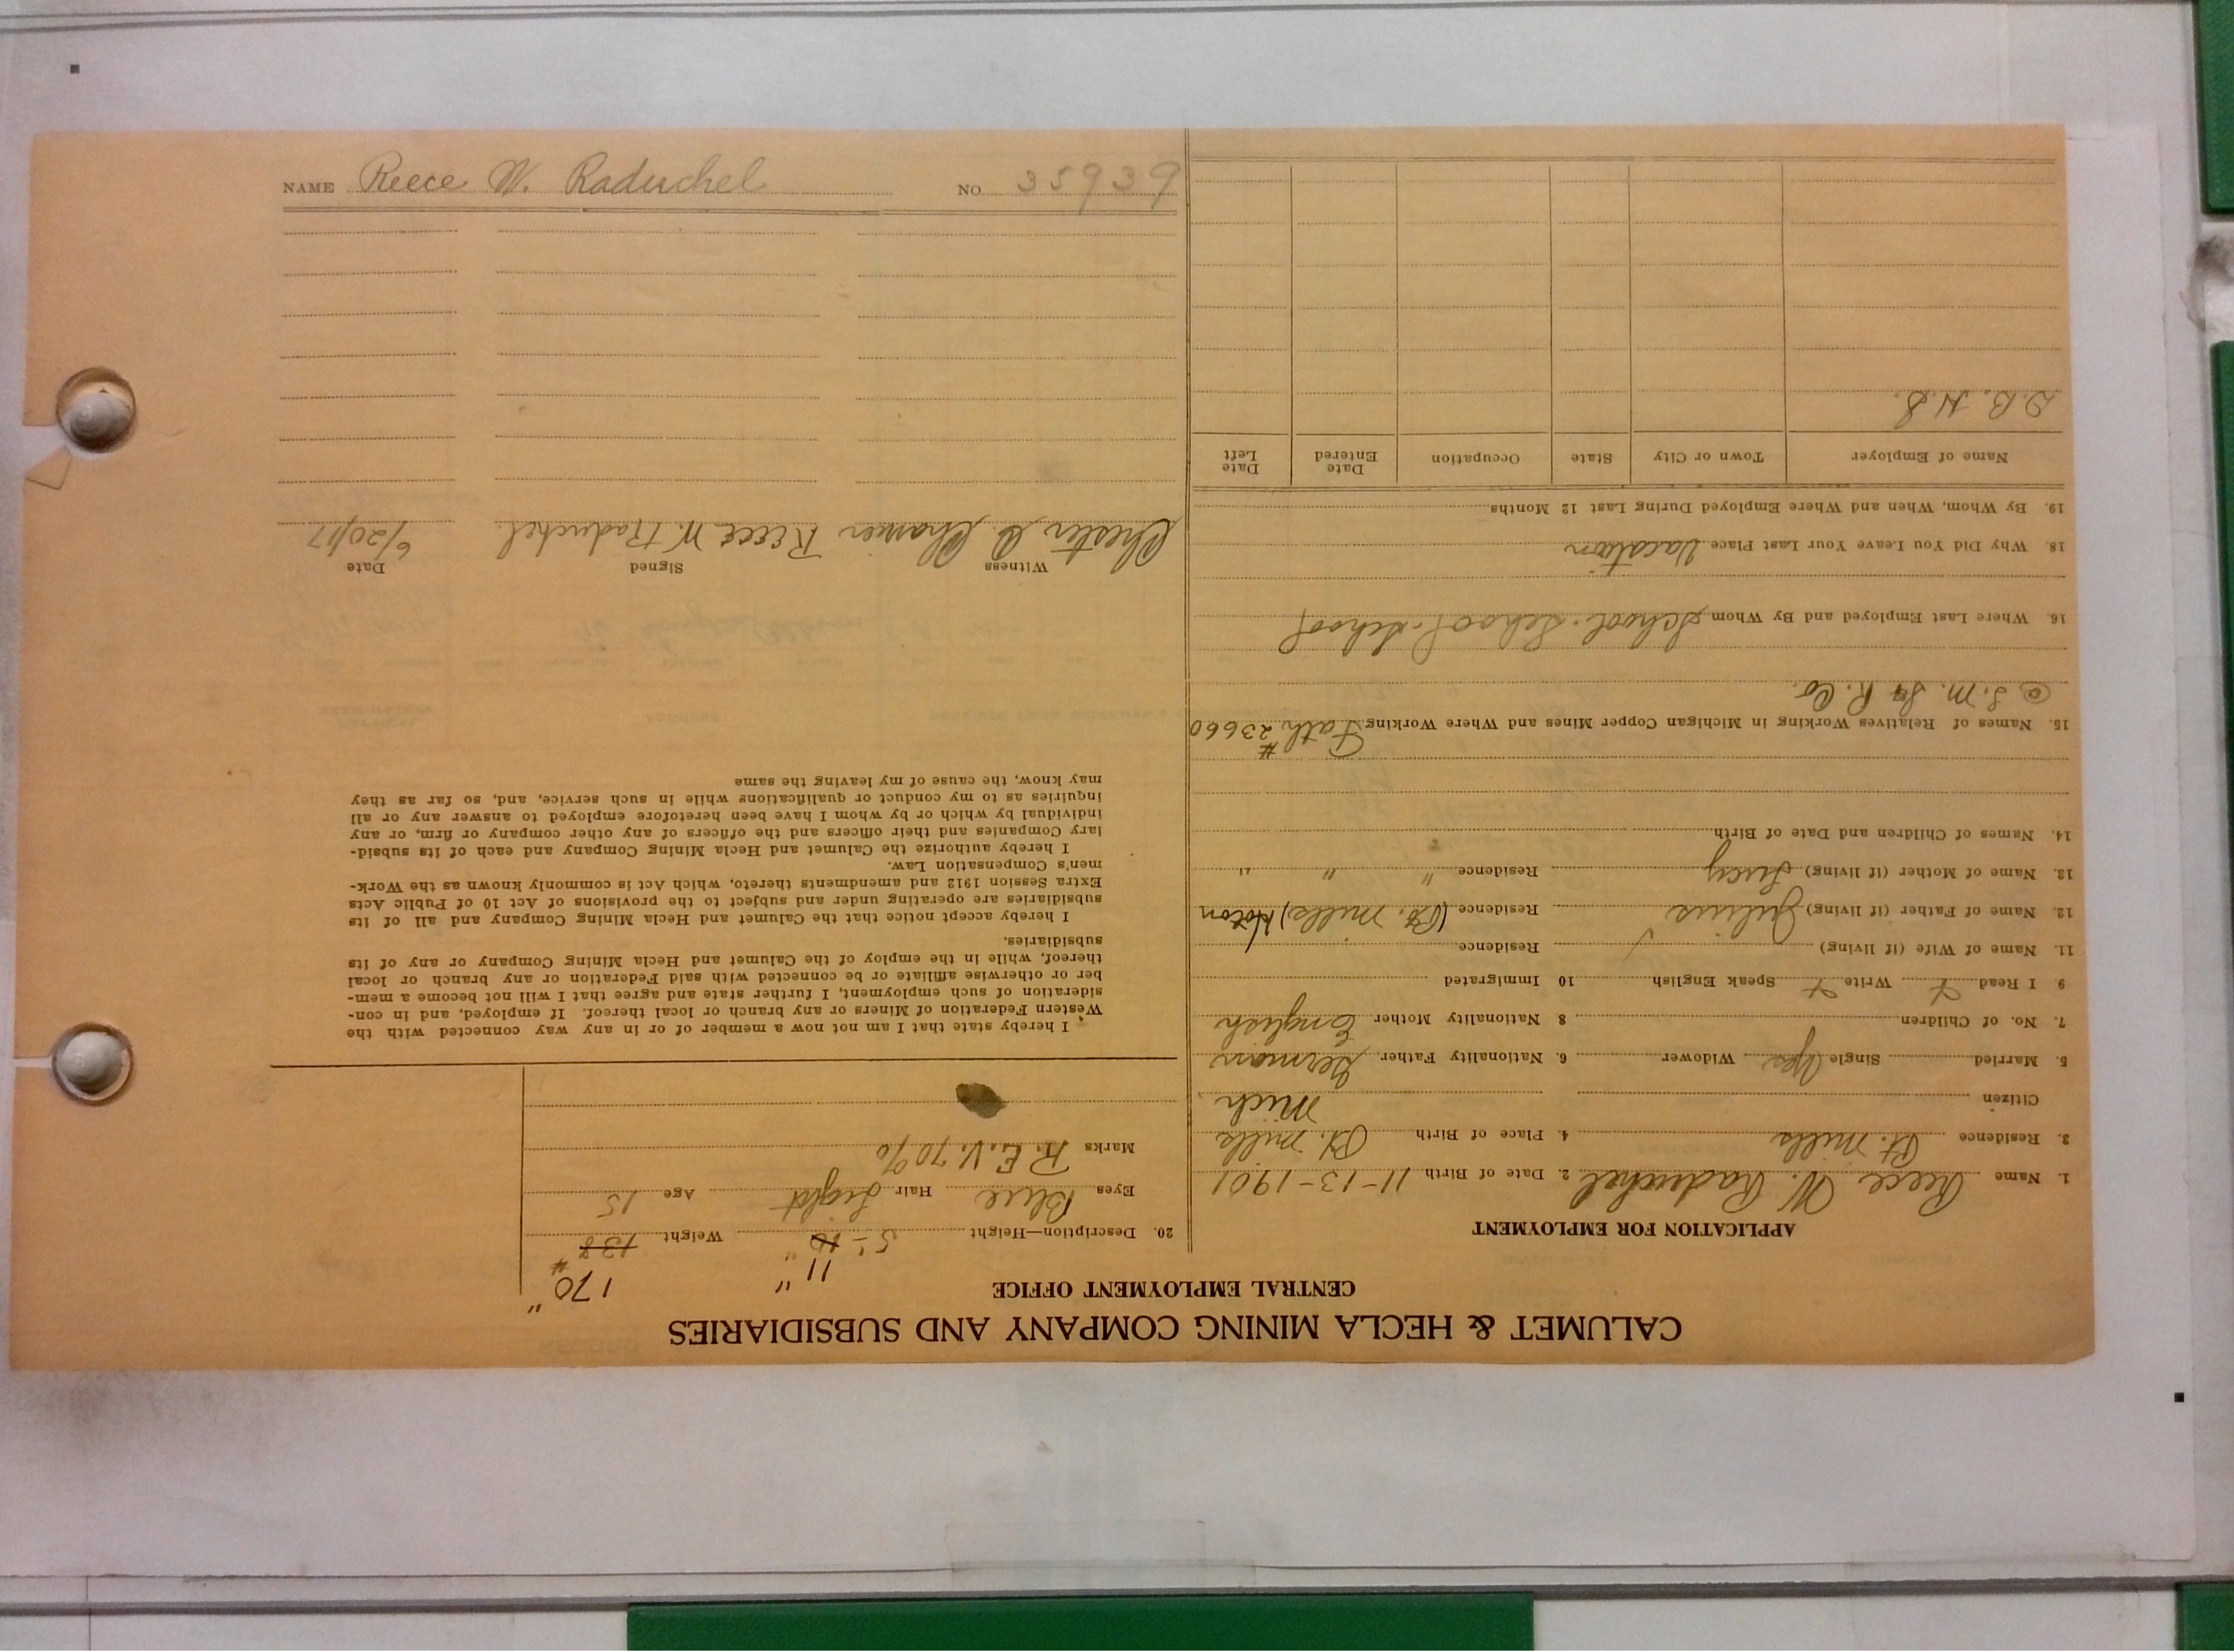 CALUMET & HECLA MINING COMPANY AND SUBSIDIARIES
CENTRAL EMPLOYMENT OFFICE
APPLICATION FOR EMPLOYMENT
1. Name Reece W. Raduchel 2. Date of Birth 11-13-1901
3. Residence Pt. Mills 4. Place of Birth Pt. Mills
Citizen Mich
5. Married Single Yes Widower 6. Nationality Father German
7. No. of Children 8 Nationality Mother English
9. I Read Write Speak English 10 Immigrated
11. Name of Wife (if living) Residence
12. Name of Father (if living) Julius Residence (Pt. Mills) Hoton
13. Name of Mother (if living) Lucy Residence " " "
14. Names of Children and Date of Birth
15. Names of Relatives Working in Michigan Copper Mines and Where Working Fath # 23660
@ L. M. S. & R. Co.
16. Where Last Employed and By Whom School. School. School
18. Why Did You Leave Your Last Place Vacation
19. By Whom, When and Where Employed During Last 12 Months
Name of Employer Town or City State Occupation Date Entered Date Left
D. B. H. S.
170 #
11 "
20. Description—Height 5'-10" Weight 138
Eyes Blue Hair Light Age 15
Marks R. E. V. 70%
I hereby state that I am not now a member of or in any way connected with the
Western Federation of Miners or any branch or local thereof. If employed, and in con-
sideration of such employment, I further state and agree that I will not become a mem-
ber or otherwise affiliate or be connected with said Federation or any branch or local
thereof, while in the employ of the Calumet and Hecla Mining Company or any of its
subsidiaries.
I hereby accept notice that the Calumet and Hecla Mining Company and all of its
subsidiaries are operating under and subject to the provisions of Act 10 of Public Acts
Extra Session 1912 and amendments thereto, which Act is commonly known as the Work-
men's Compensation Law.
I hereby authorize the Calumet and Hecla Mining Company and each of its subsid-
iary Companies and their officers and the officers of any other company or firm, or any
individual by which or by whom I have been heretofore employed to answer any or all
inquiries as to my conduct or qualifications while in such service, and, so far as they
may know, the cause of my leaving the same
Witness Signed Date
Chester Reece W. Raduchel. 6/20/17
NAME Reece W. Raduchel NO. 35939